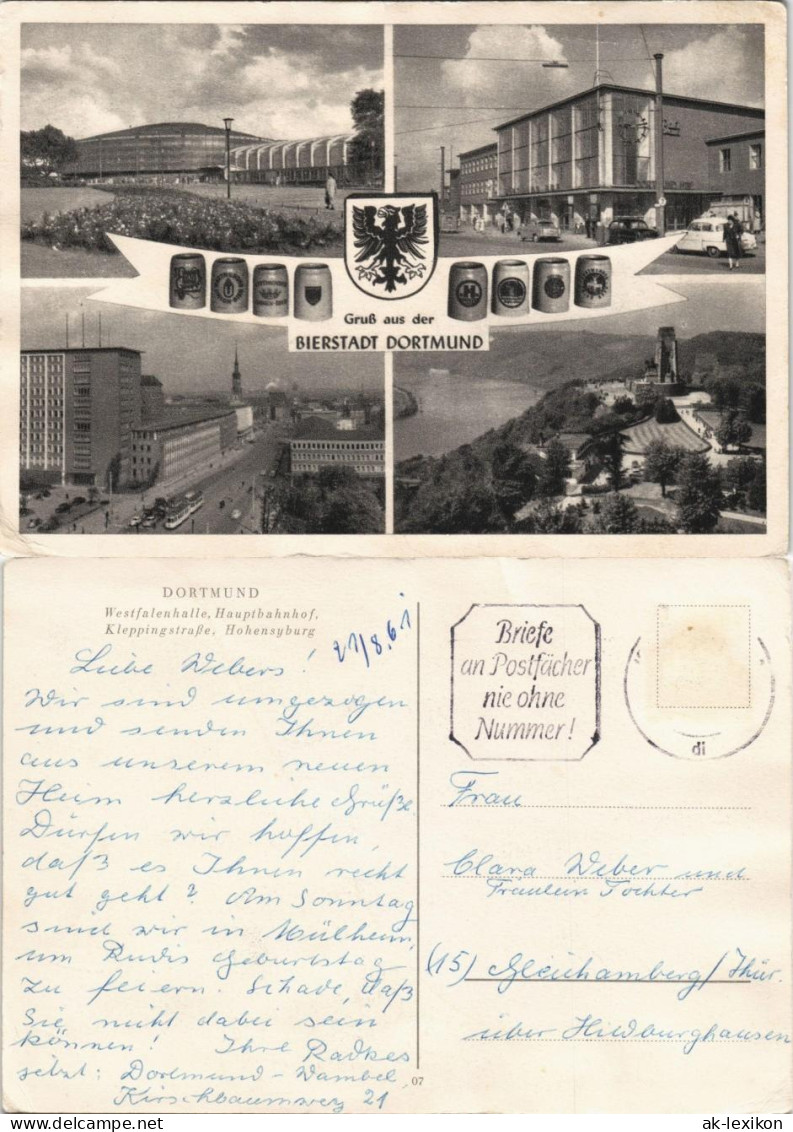 Gruß aus der
BIERSTADT DORTMUND
H
DORTMUND
Westfalenhalle, Hauptbahnhof,
Kleppingstraße, Hohensyburg
21/8.61
Liebe Webers!
Wir sind umgezogen
und senden Ihnen
aus unserem neuen
Heim herzliche Grüße.
Dürfen wir hoffen,
daß es Ihnen recht
gut geht? Am Sonntag
sind wir in Mülheim,
um Rudis Geburtstag
zu feiern. Schade, daß
Sie nicht dabei sein
können! Ihre Radkes
jetzt: Dortmund-Wambel,
Kirschbaumweg 21
07
Briefe
an Postfächer
nie ohne
Nummer!
di
Frau
Clara Weber und
Fräulein Tochter
(15) Gleichamberg/Thür.
über Hildburghausen
ak-lexikon